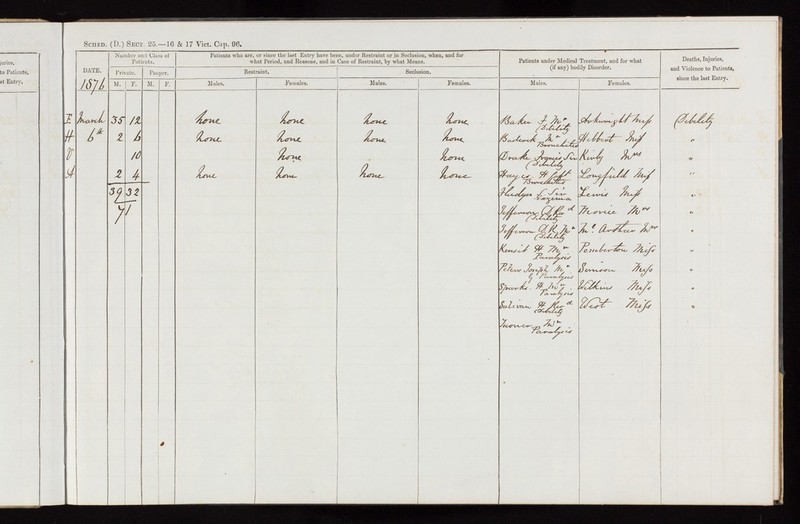 SCHED. (D.) SECT. 25.—16 & 17 Vict. Cap. 96.
DATE.
Number and Class of Patients.
Patients who are, or since the last Entry have been, under Restraint or in Seclusion, when, and for what Period, and Reasons, and in Case of Restraint, by what Means.
Patients under Medical Treatment, and for what (if any) bodily Disorder.
Deaths, Injuries, and Violence to Patients, since the last Entry.
Private. Pauper. Restraint. Seclusion.
1876 M. F. M. F. Males. Females. Males. Females. Males. Females.
E March 35 12 none none none none Baker F. Mr Debility Arkwright Miss Debility
H 6th 2 6 none none none none Badcock Mr Bronchitis Hibbert Miss "
V 10 none none Drake Sir Debility Kirby Mrs "
A 2 4 none none none none Hayes H Capt Bronchitis Longfield Miss "
39 32 Sir Lewis Miss "
71 Jefferson Revd Debility Morice Mrs "
Jefferson D. R. Mr Debility Mc Arthur Mrs "
H. Mr Paralysis Pemberton Miss "
Peters Joseph Mr Paralysis Miss "
Sparks H. Mr Paralysis Wilkins Miss "
Sulivan H. Revd Debility West Miss "
Mr Paralysis
juries,
to Patients,
st Entry.